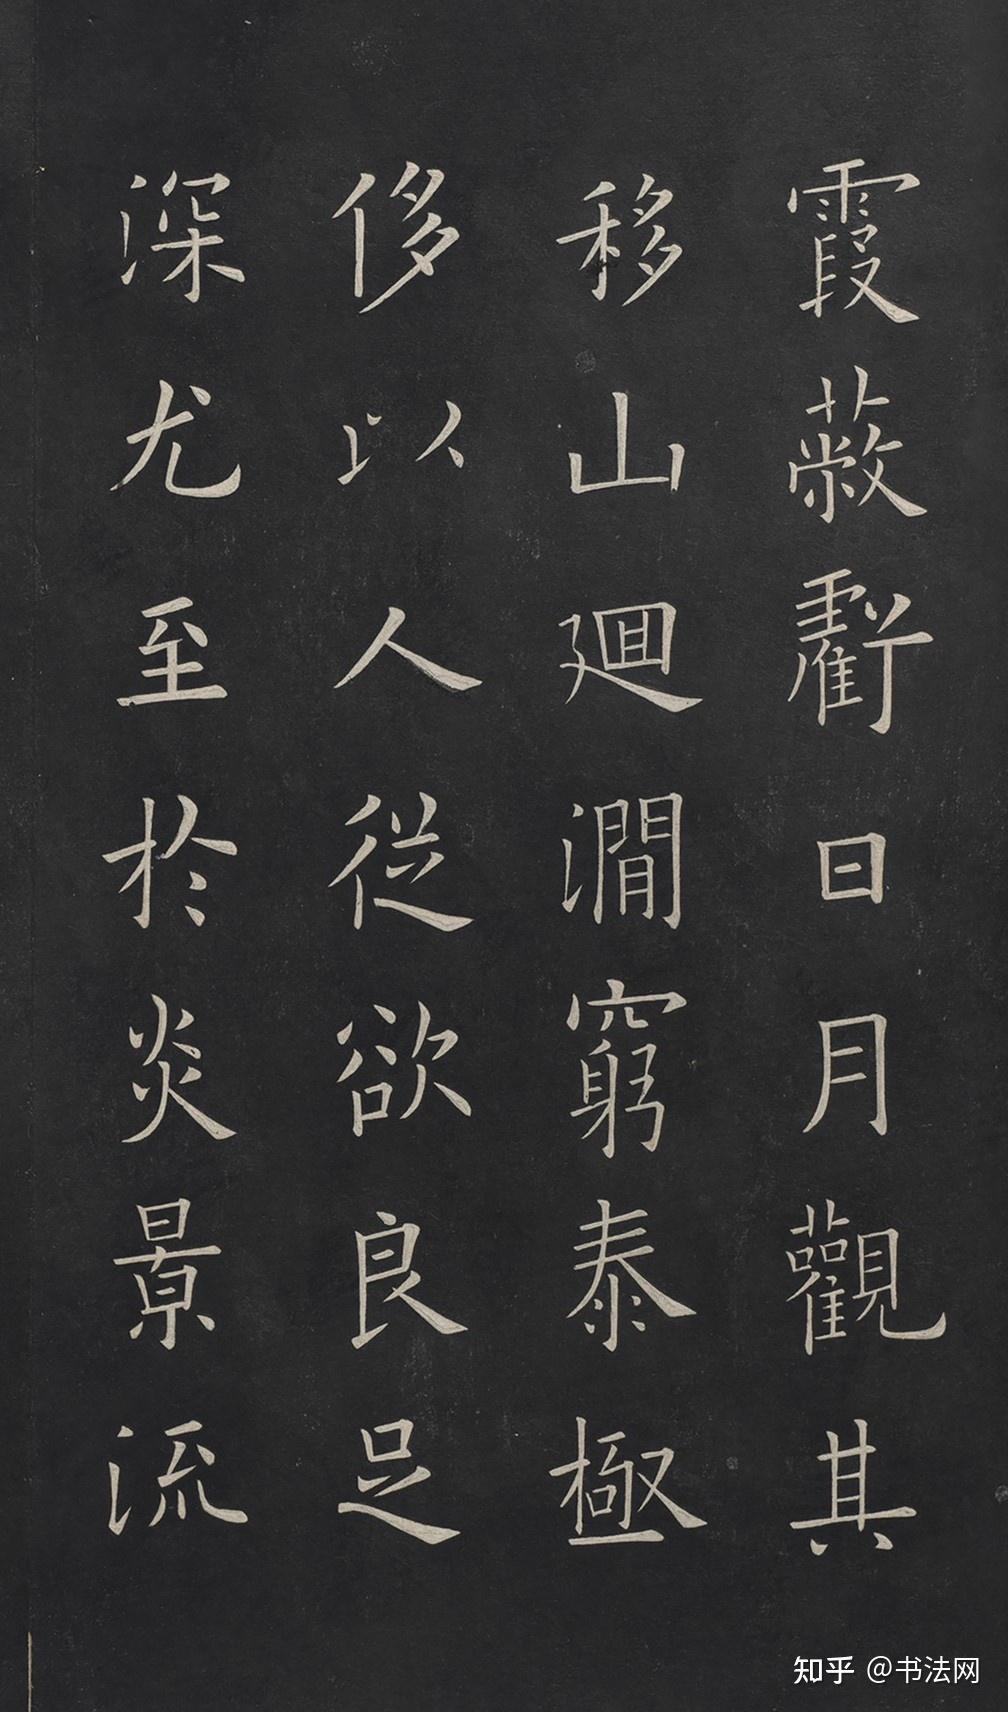 霞蔽虧日月觀其
移山迴澗窮泰極
侈以人從欲良足
深尤至於炎景流
知乎 @书法网